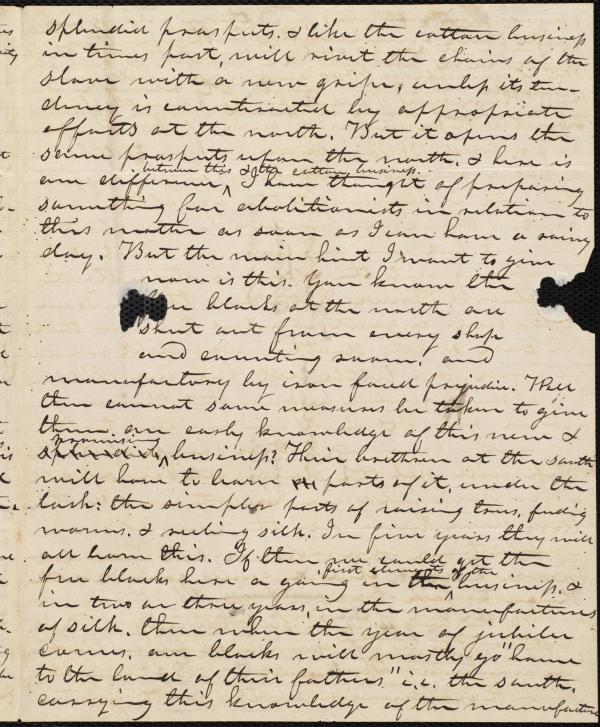 splendid prospects. & like the cotton business
in times past, will rivet the chains of the
slave with a new gripe, unless its ten-
dency is counteracted by appropriate
efforts at the north. But it opens the
same prospects upon the north. & here is
between this & the cotton business.
one difference ^ I have thought of preparing
something for abolitionists in relation to
this matter as soon as I can have a rainy
day. But the main hint I want to give
now is this. You know the
free blacks at the north are
shut out from every shop
and counting room, and
manufactory by iron faced prejudice. Well
then cannot some measures be taken to give
them an early knowledge of this new &
promising
splendid ^ business? Their brethren at the south
will have to learn parts of it, under the
lash: the simpler parts of raising trees, feeding
worms, & reeling silk. In five years they will
all learn this. If then we could get the
first elements of the
free blacks here a going in the ^ business, &
in two or three years, in the manufactures
of silk. then when the year of jubilee
comes, our blacks will mostly go "home
to the land of their fathers" i.e. the south,
carrying this knowledge of the manufacture